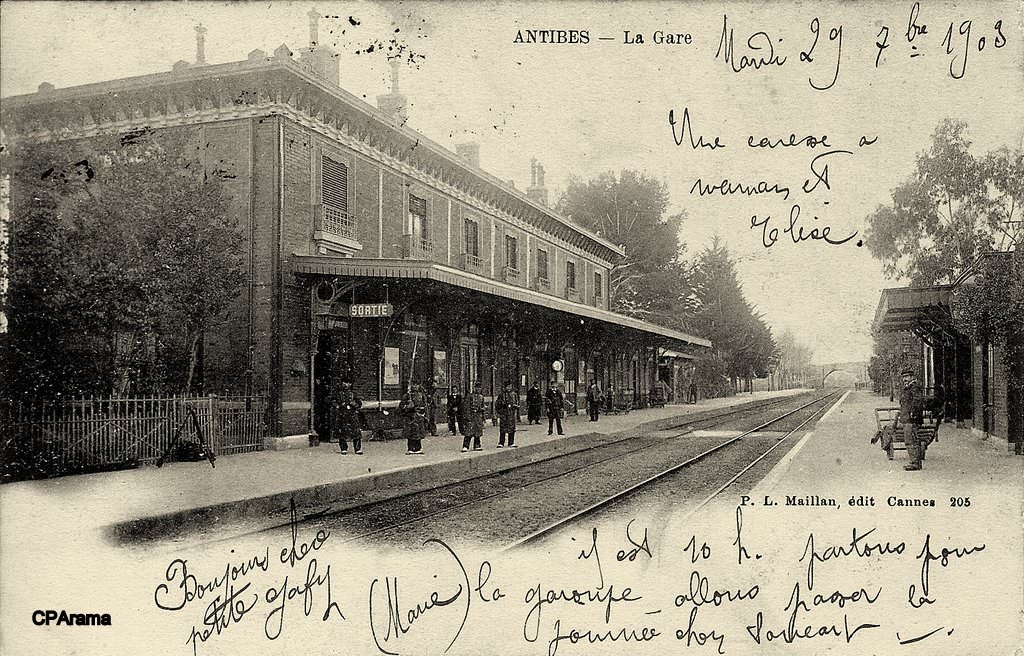 ANTIBES — La Gare
Mardi 29 7bre 1903
Une caresse a
maman et
Elise.
SORTIE
P. L. Maillan, édit Cannes 205
Bonjour chère
petite
(Marie)
il est 10 h. partons pour
la garoupe allons passer la
journée chez
CPArama